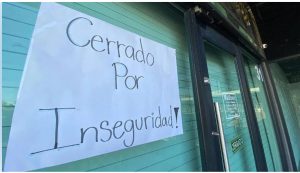 Cerrado
Por
Inseguridad!